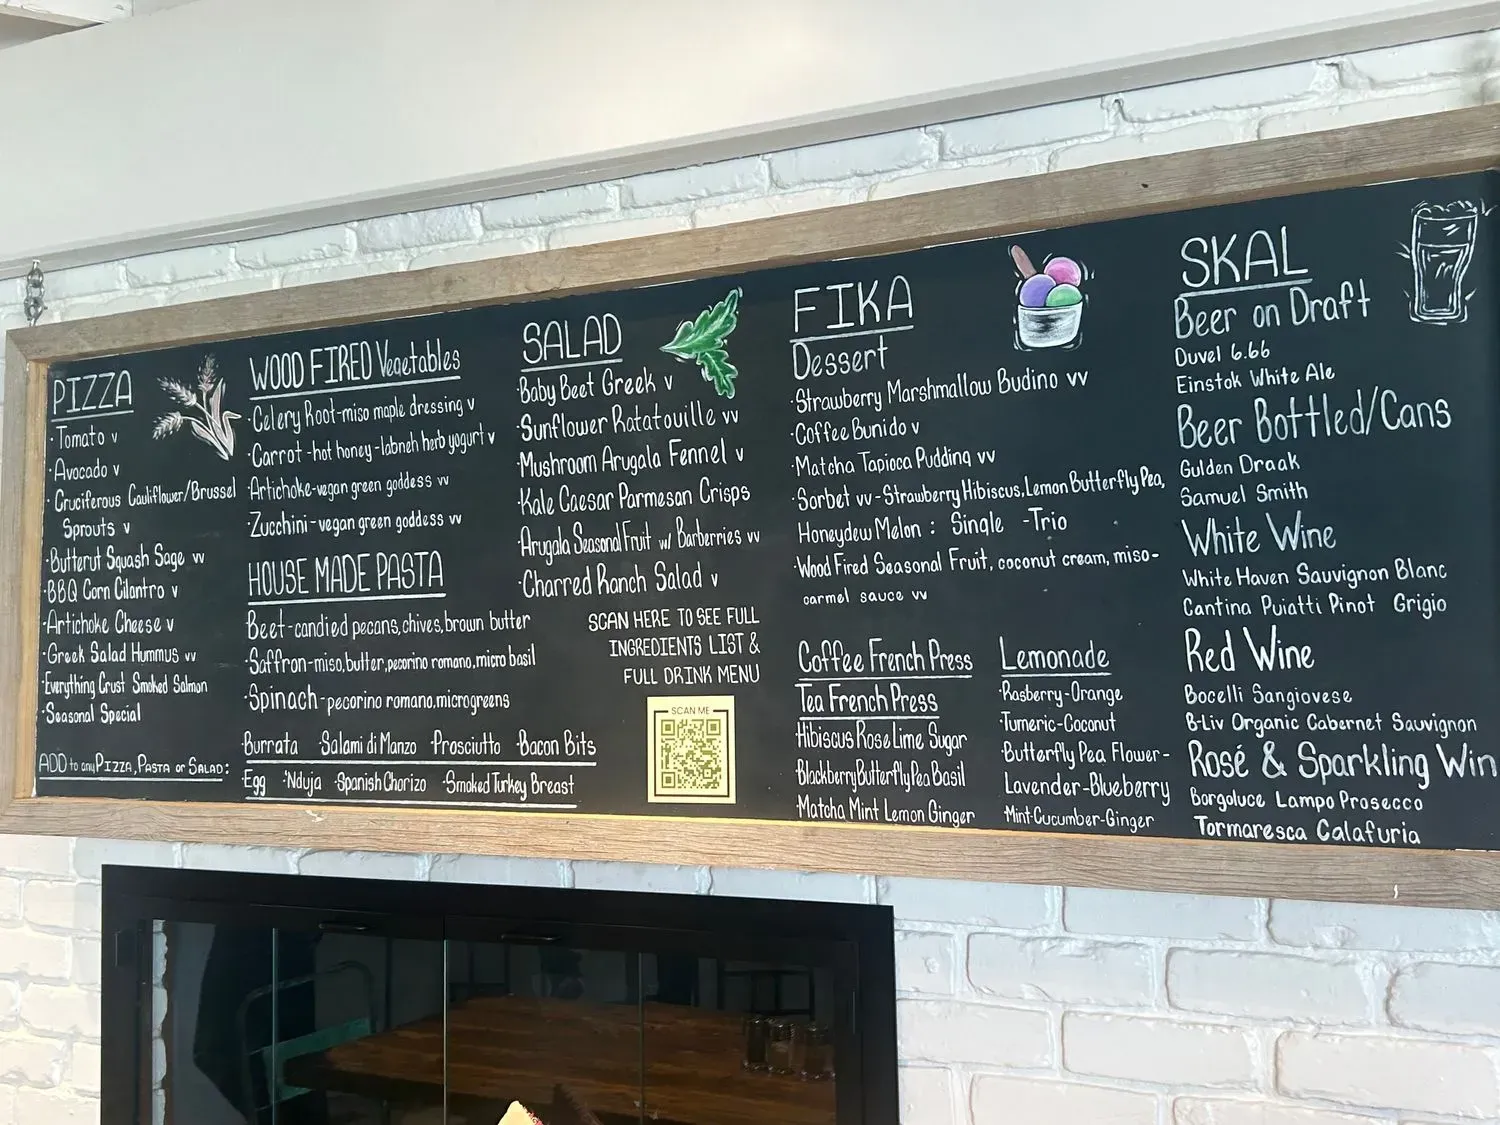 PIZZA
·Tomato v
·Avocado v
·Cruciferous Cauliflower/Brussel
Sprouts v
·Butterut Squash Sage vv
·BBQ Corn Cilantro v
·Artichoke Cheese v
·Greek Salad Hummus vv
·Everything Crust Smoked Salmon
·Seasonal Special
WOOD FIRED Vegetables
·Celery Root-miso maple dressing v
·Carrot -hot honey-labneh herb yogurt v
·Artichoke-vegan green goddess vv
·Zucchini-vegan green goddess vv
HOUSE MADE PASTA
·Beet-candied pecans,chives,brown butter
·Saffron-miso,butter,pecorino romano,micro basil
·Spinach-pecorino romano,microgreens
ADD to any PIZZA, PASTA or SALAD:
·Burrata ·Salami di Manzo ·Prosciutto ·Bacon Bits
·Egg ·'Nduja ·Spanish Chorizo ·Smoked Turkey Breast
SALAD
·Baby Beet Greek v
·Sunflower Ratatouille vv
·Mushroom Arugala Fennel v
·Kale Caesar Parmesan Crisps
·Arugala Seasonal Fruit w/ Barberries vv
·Charred Ranch Salad v
SCAN HERE TO SEE FULL
INGREDIENTS LIST &
FULL DRINK MENU
SCAN ME
FIKA
Dessert
·Strawberry Marshmallow Budino vv
·Coffee Bunido v
·Matcha Tapioca Pudding vv
·Sorbet vv-Strawberry Hibiscus, Lemon Butterfly Pea,
Honeydew Melon : Single -Trio
·Wood Fired Seasonal Fruit, coconut cream, miso-
carmel sauce vv
Coffee French Press
Tea French Press
·Hibiscus Rose Lime Sugar
·Blackberry Butterfly Pea Basil
·Matcha Mint Lemon Ginger
Lemonade
·Rasberry-Orange
·Tumeric-Coconut
·Butterfly Pea Flower-
Lavender-Blueberry
·Mint-Cucumber-Ginger
SKAL
Beer on Draft
Duvel 6.66
Einstok White Ale
Beer Bottled/Cans
Gulden Draak
Samuel Smith
White Wine
White Haven Sauvignon Blanc
Cantina Puiatti Pinot Grigio
Red Wine
Bocelli Sangiovese
B-Liv Organic Cabernet Sauvignon
Rosé & Sparkling Win
Borgoluce Lampo Prosecco
Tormaresca Calafuria